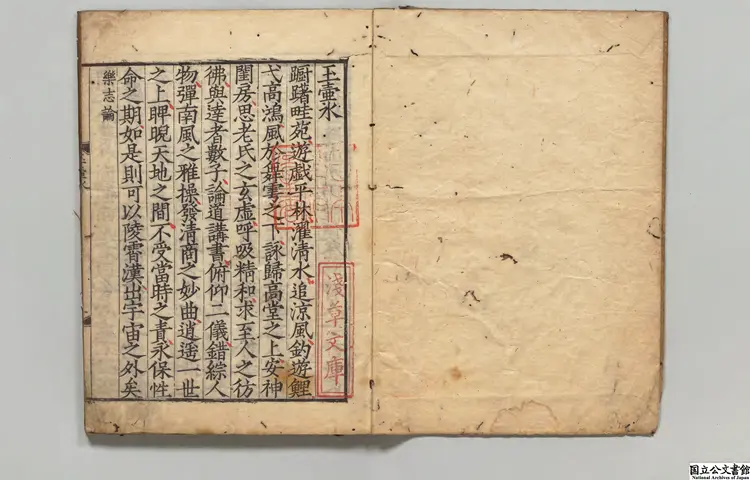 玉壷氷
蹰躇畦苑遊戯平林濯清水追涼風釣遊鯉
弋高鴻風於舞雩之下詠歸高堂之上安神
閨房思老氏之玄虛呼吸精和求至人之彷
彿與達者數子論道講書俯仰二儀錯綜人
物彈南風之雅操發清商之妙曲逍遥一世
之上睥睨天地之間不受當時之責永保性
命之期如是則可以陵霄漢出宇宙之外矣
樂志論
淺草文庫
国立公文書館
National Archives of Japan